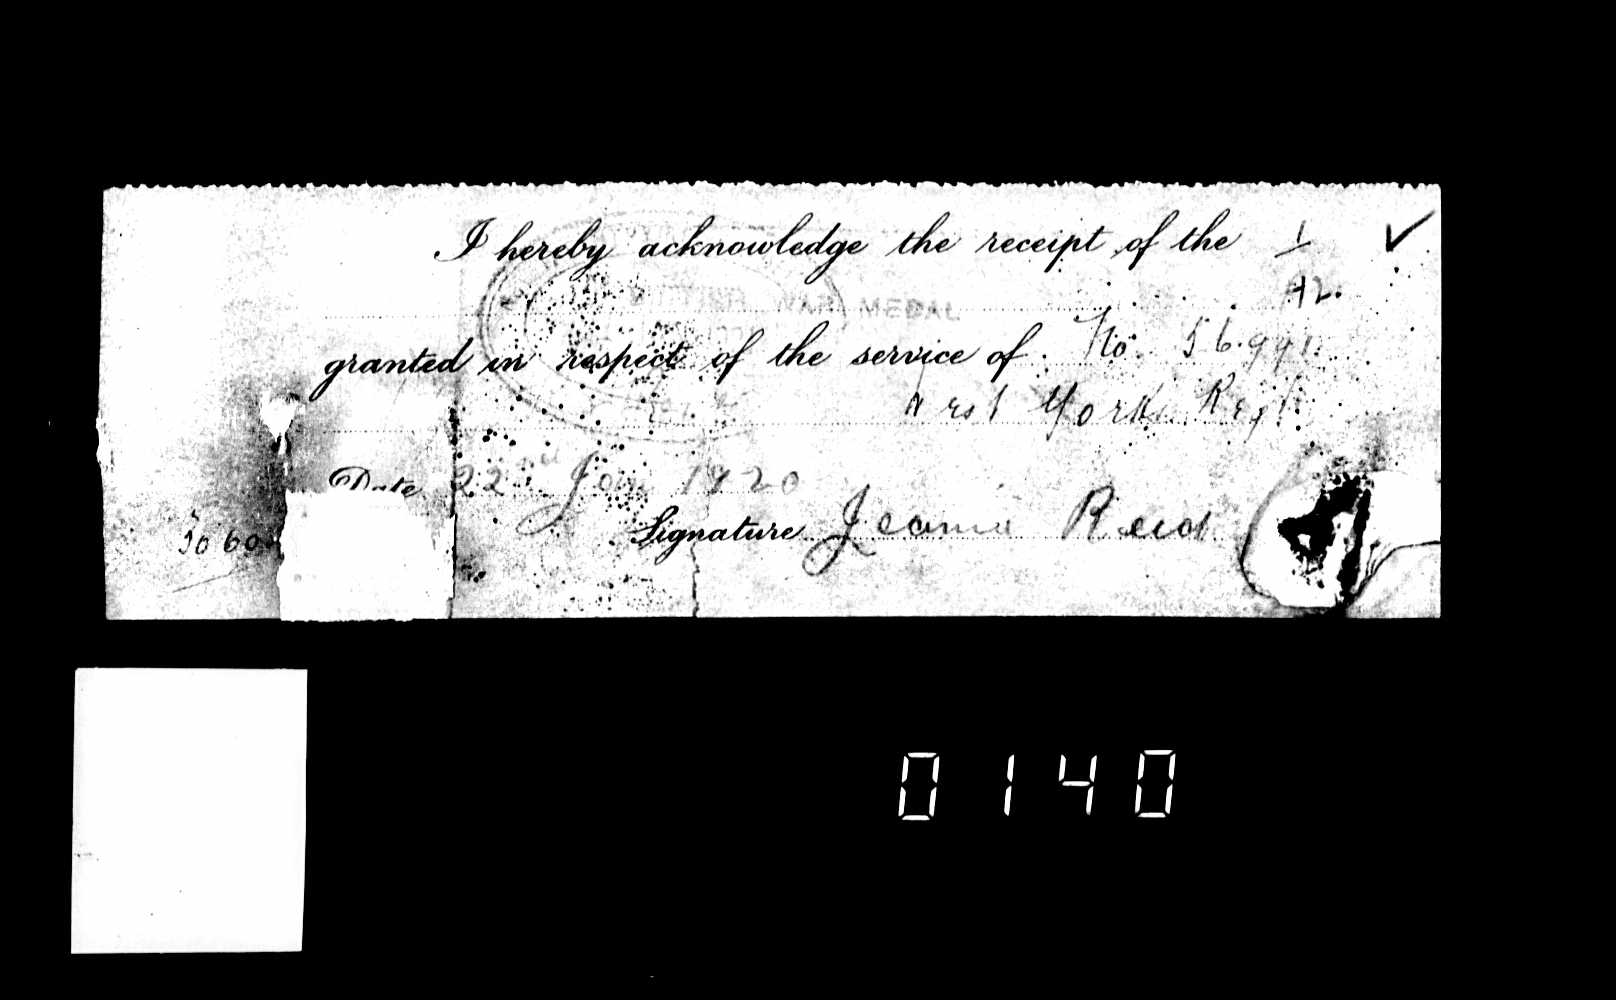 I hereby acknowledge the receipt of the 1 ✓
A2.
WAR MEDAL
granted in respect of the service of No. 56.991.
West York. Regt.
Date 22nd Jan 1920
Signature Jeanie Reid
0140